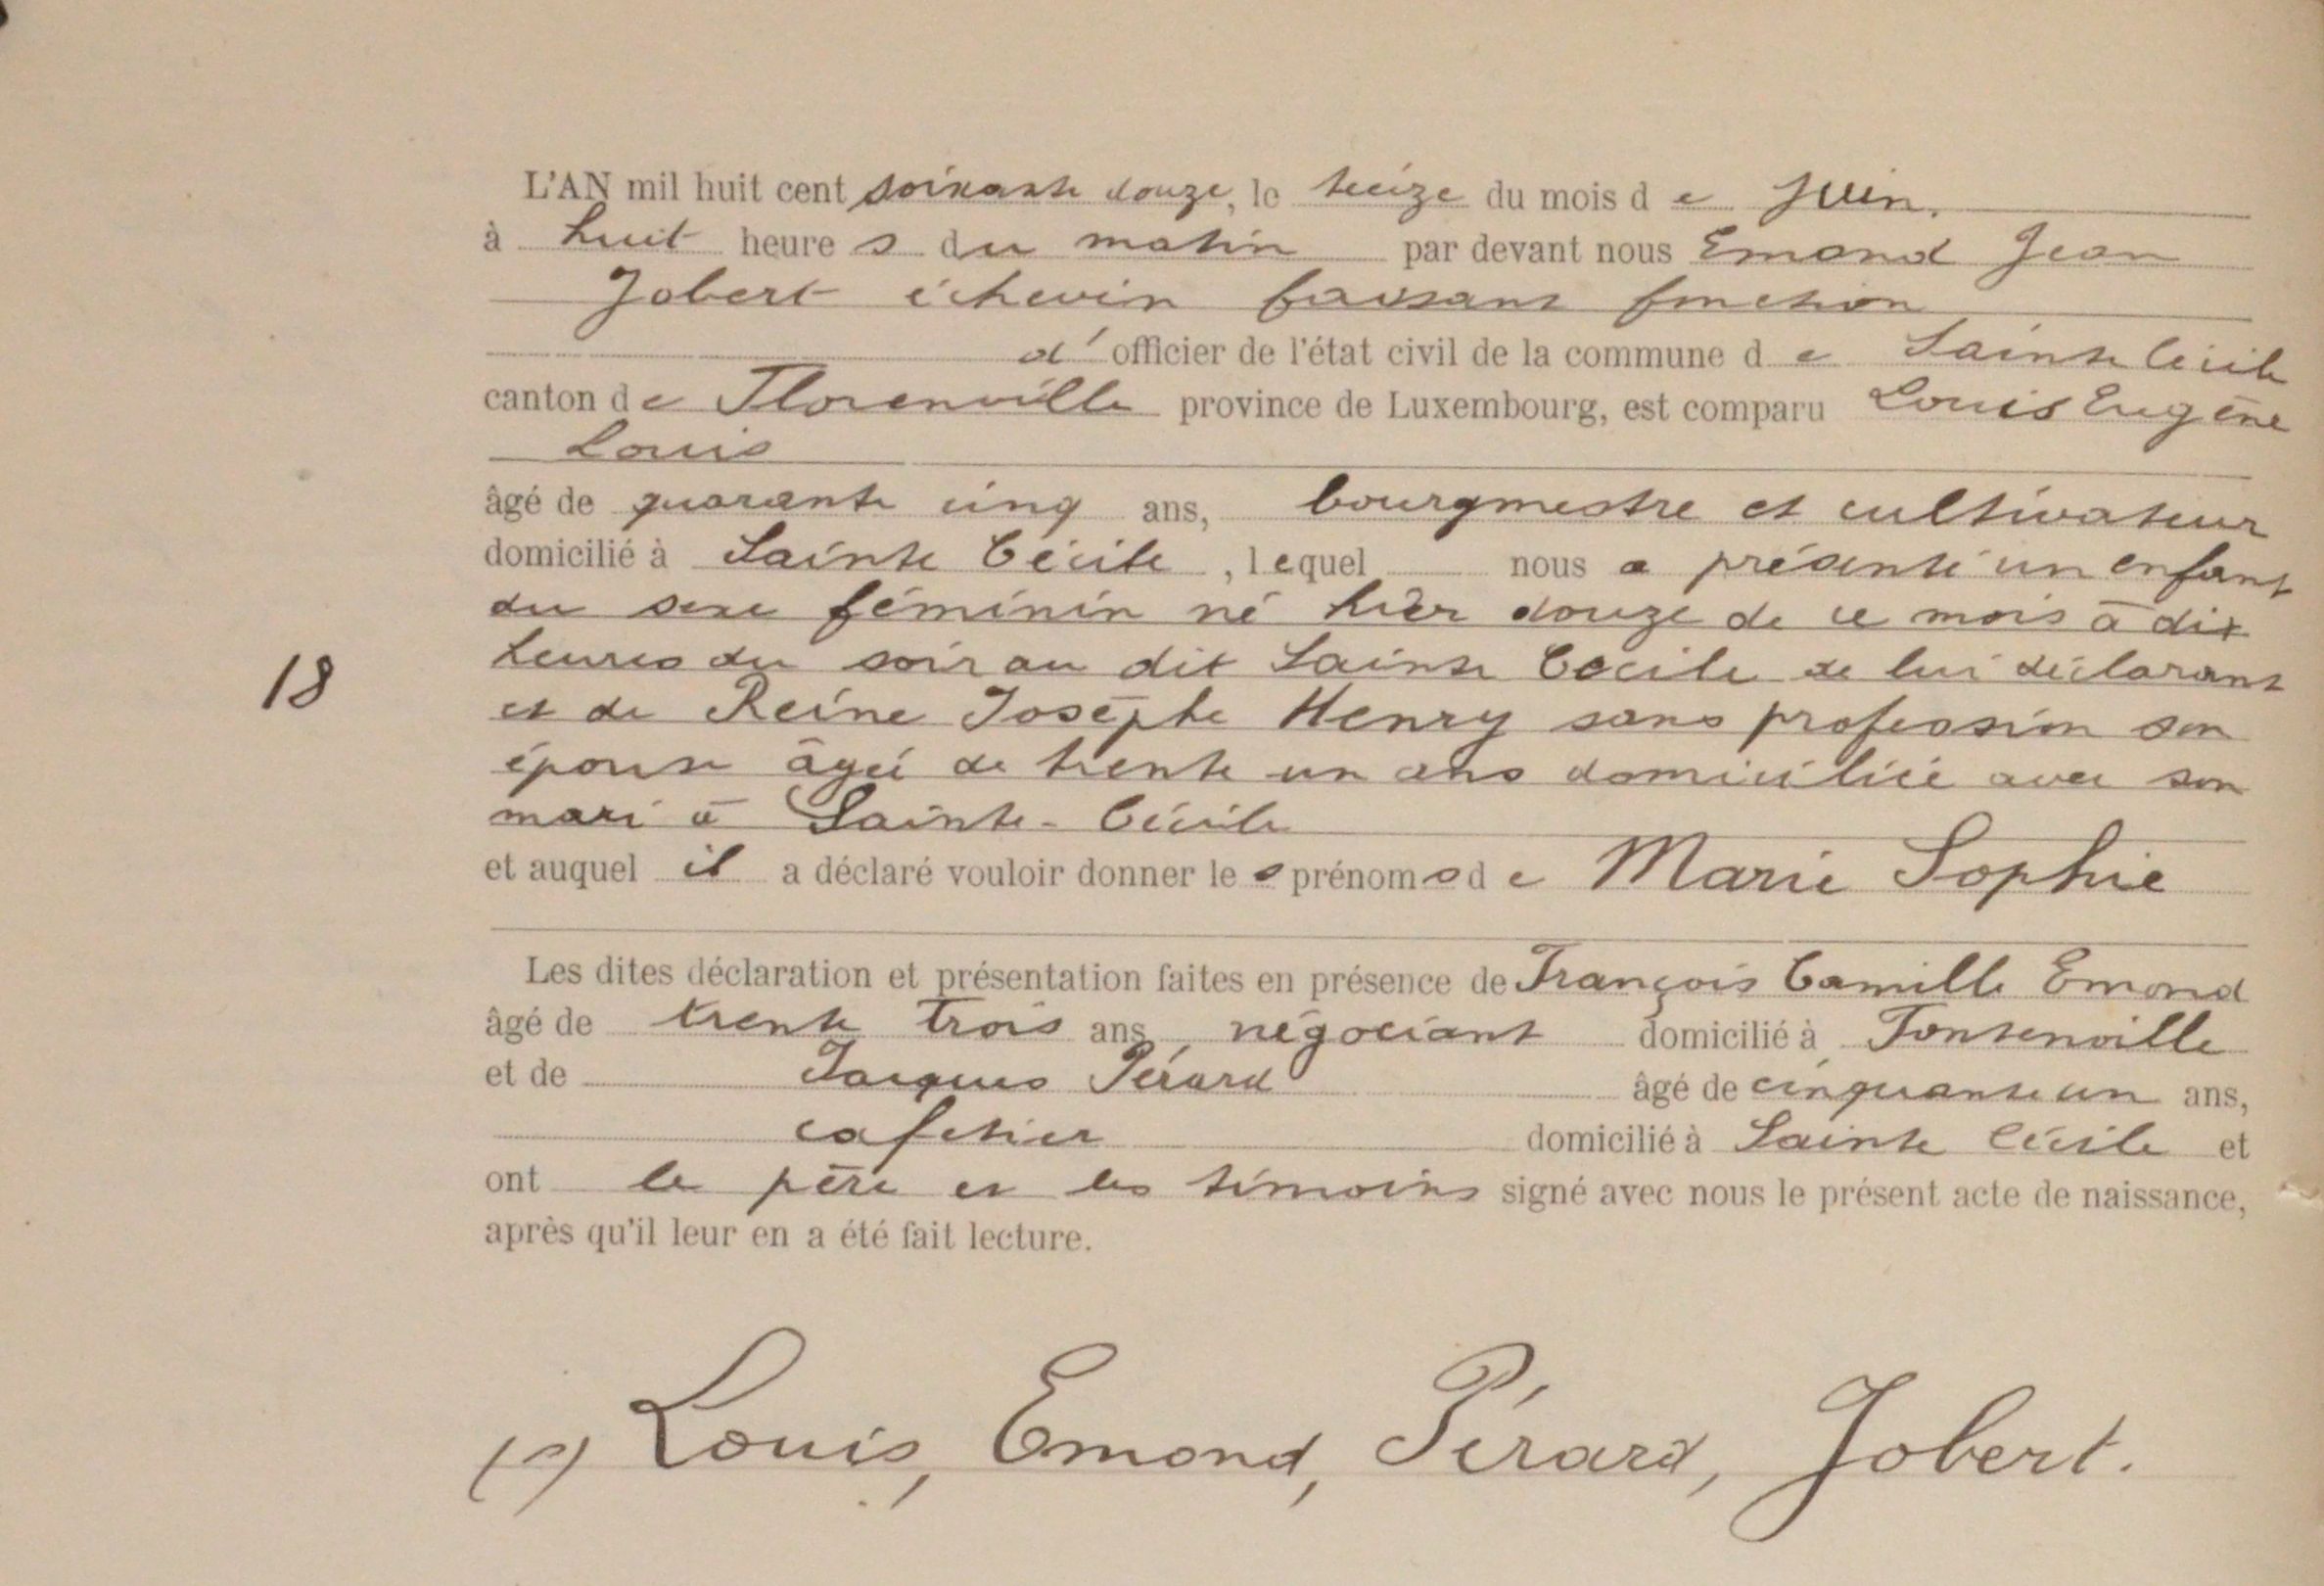 L'AN mil huit cent soixante douze, le treize du mois de Juin.
à huit heures du matin par devant nous Emond Jean
Jobert échevin faisant fonction
d'officier de l'état civil de la commune de Sainte Cécile
canton de Florenville province de Luxembourg, est comparu Louis Eugène
Louis
âgé de quarante cinq ans, bourgmestre et cultivateur
domicilié à Sainte Cécile, lequel nous a présenté un enfant
du sexe féminin né hier douze de ce mois à dix
heures du soir au dit Sainte Cécile de lui déclarant
18
et de Reine Josèphe Henry sans profession son
épouse âgée de trente un ans domiciliée avec son
mari à Sainte-Cécile
et auquel il a déclaré vouloir donner les prénoms de Marie Sophie
Les dites déclaration et présentation faites en présence de François Camille Emond
âgé de trente trois ans, négociant domicilié à Fontenoille
et de Jacques Pérard âgé de cinquante un ans,
cafetier domicilié à Sainte Cécile et
ont le père et les témoins signé avec nous le présent acte de naissance,
après qu'il leur en a été fait lecture.
(s) Louis, Emond, Pérard, Jobert.